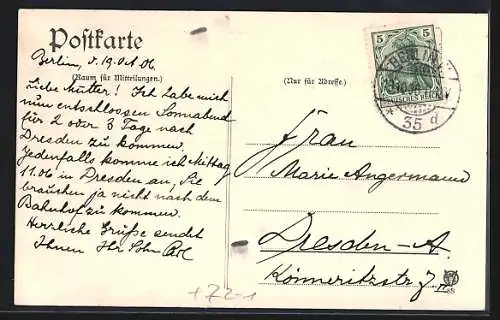 Postkarte
Berlin, d. 19. Okt. 06.
(Raum für Mitteilungen.)
Liebe Mutter! Ich habe mich
nun entschlossen Sonnabend
für 2 oder 3 Tage nach
Dresden zu kommen.
Jedenfalls komme ich Mittag
11.06 in Dresden an, Sie
brauchen ja nicht nach dem
Bahnhof zu kommen.
Herzliche Grüße sendet
Ihnen Ihr Sohn
(Nur für Adresse.)
5 5
DEUTSCHES REICH
BERLIN
* 35 d
Frau
Marie Angermann
Dresden-A.
Könneritzstr. 7
+72-1